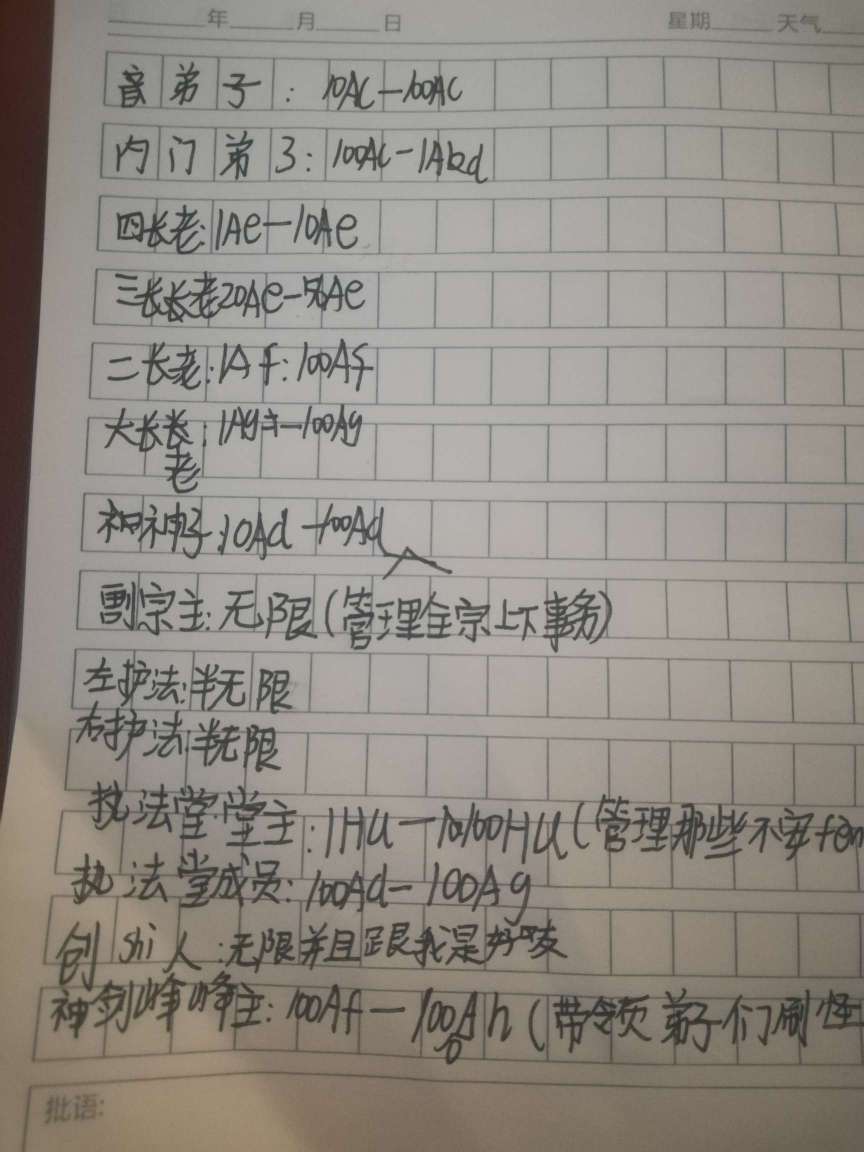 年 月 日 星期 天气
音弟子：10AC—100AC
内门弟3：100AC-1Abd
四长老：1Ae—10Ae
三长长老20Ae-Ae
二长老：1Af：100Af
大长长：1Ag—100Ag
老
神子：10Ad-100Ad
副宗主：无限（管理全宗上下事务）
左护法：半无限
右护法：半无限
执法堂堂主：1HU—100HU（管理那些不安fen
执法堂成员：100Ad-100Ag
创shi人：无限并且跟我是好友
神剑峰峰主：100Af—100Ah（带领弟子们刷怪
批语：